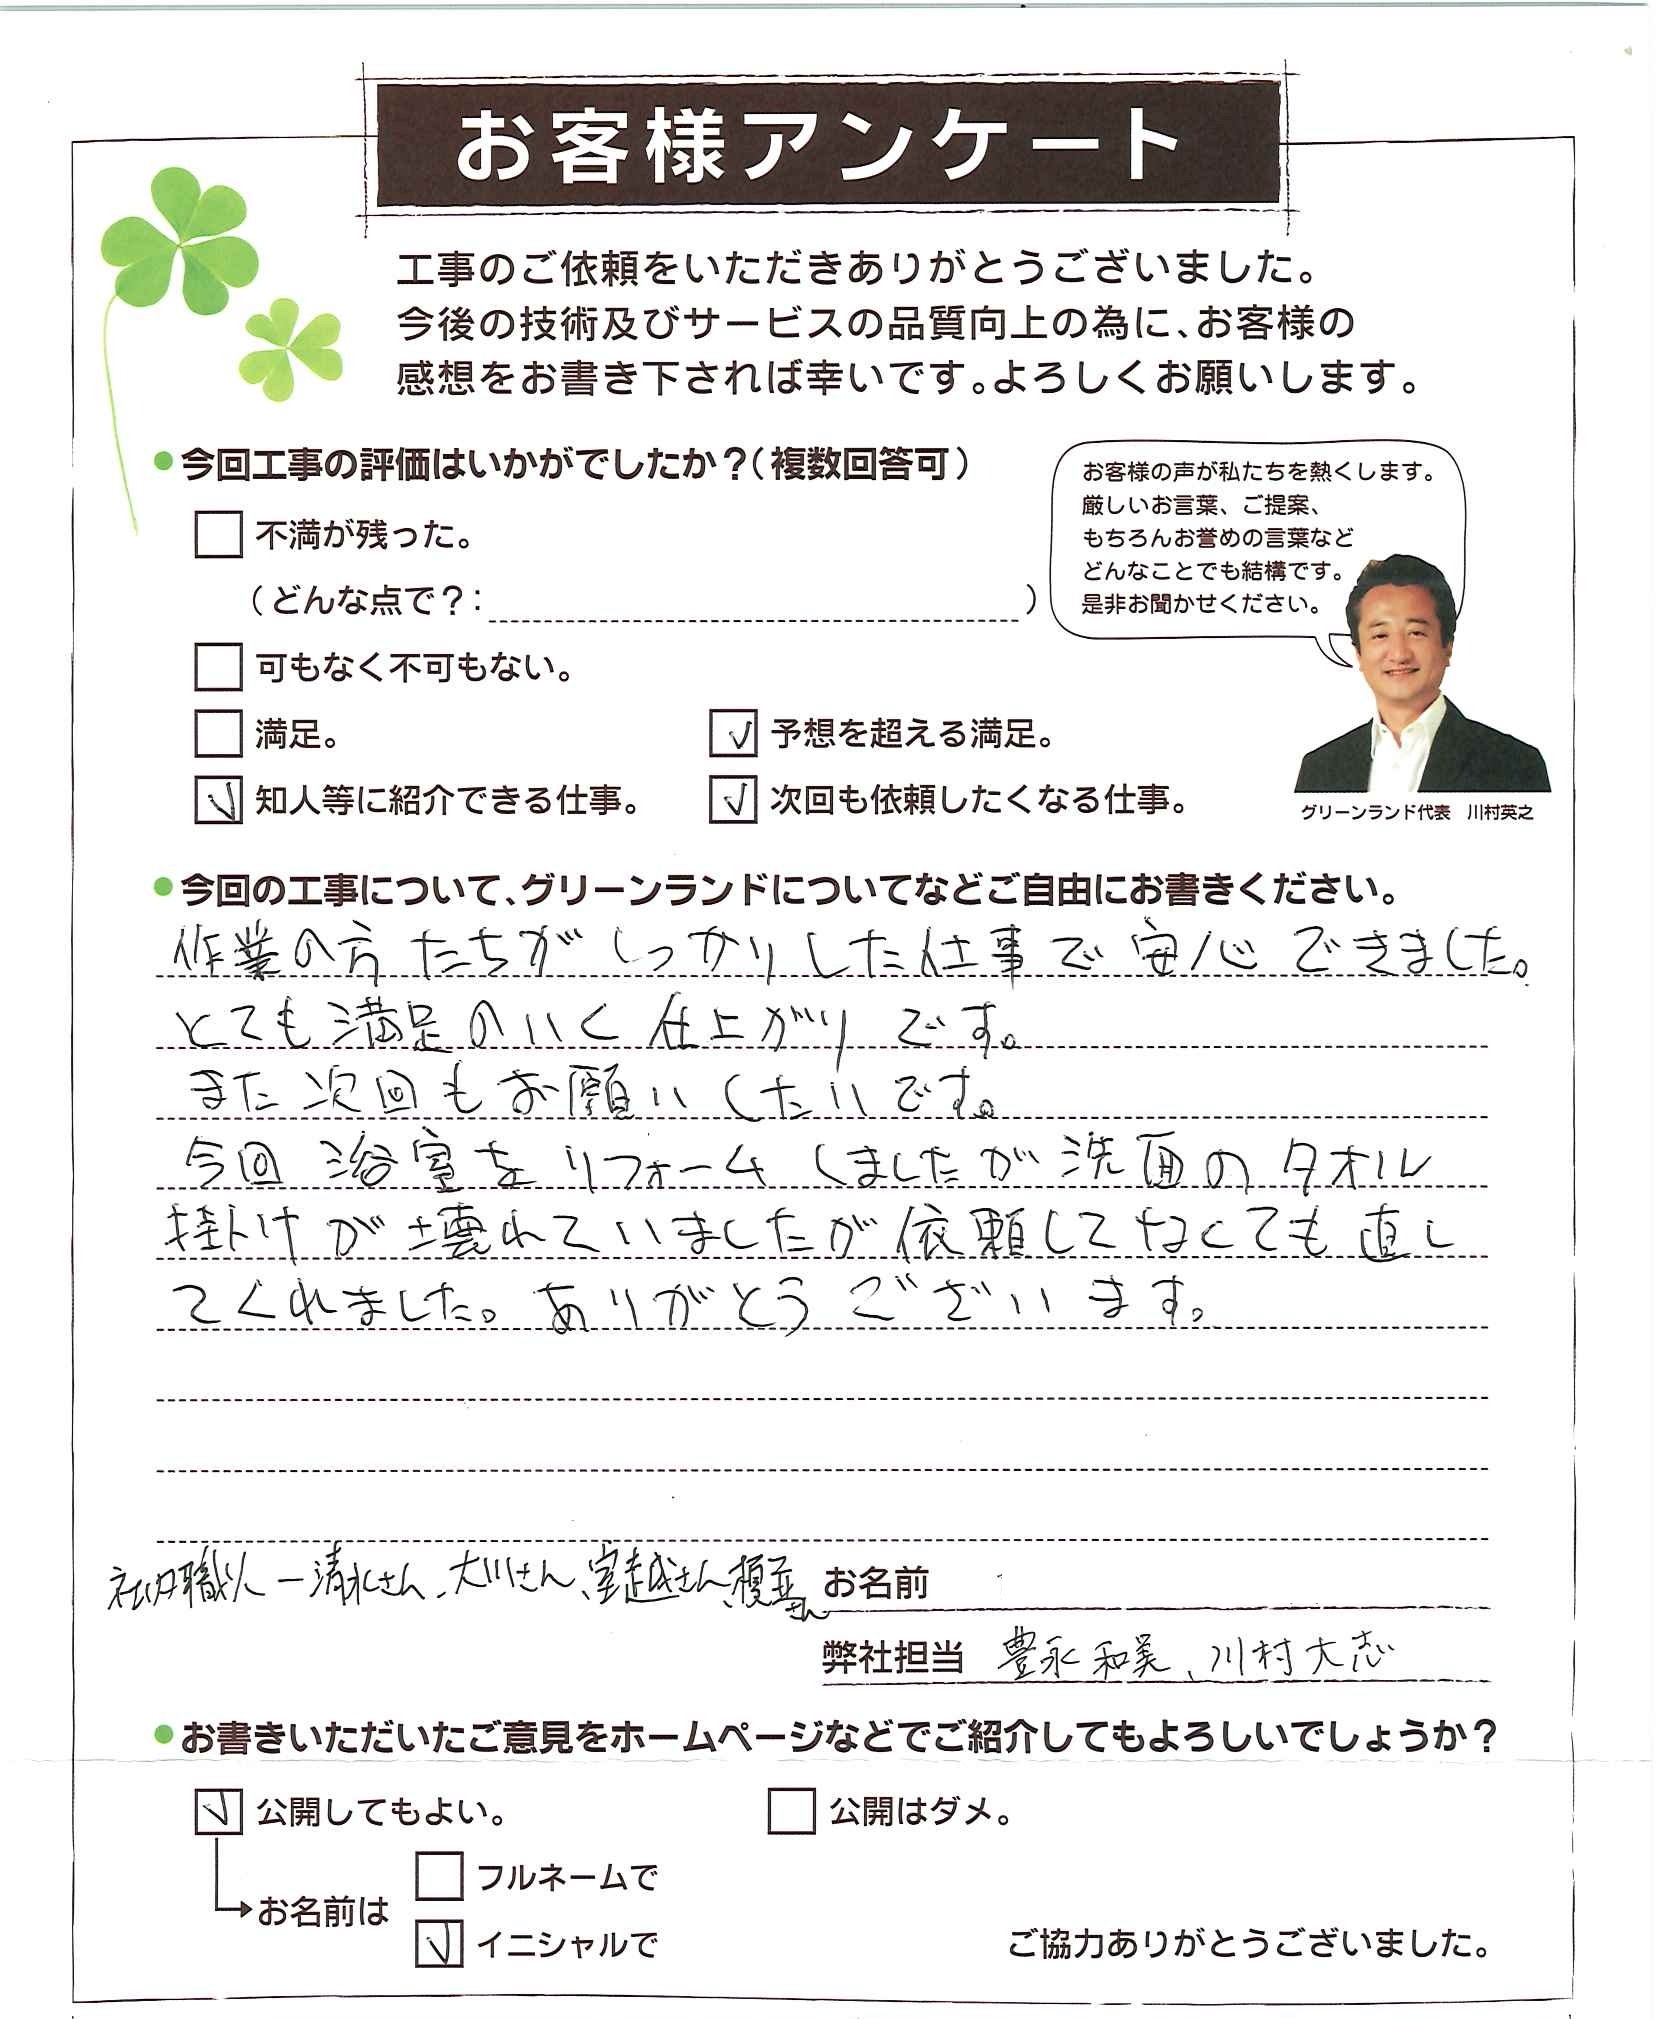 お客様アンケート
工事のご依頼をいただきありがとうございました。
今後の技術及びサービスの品質向上の為に、お客様の
感想をお書き下されば幸いです。よろしくお願いします。
●今回工事の評価はいかがでしたか？(複数回答可)
お客様の声が私たちを熱くします。
厳しいお言葉、ご提案、
もちろんお誉めの言葉など
どんなことでも結構です。
是非お聞かせください。
不満が残った。
(どんな点で？: )
可もなく不可もない。
満足。
予想を超える満足。
知人等に紹介できる仕事。
次回も依頼したくなる仕事。
グリーンランド代表 川村英之
●今回の工事について、グリーンランドについてなどご自由にお書きください。
作業の方たちがしっかりした仕事で安心できました。
とても満足のいく仕上がりです。
また次回もお願いしたいです。
今回浴室をリフォームしましたが洗面のタオル
掛けが壊れていましたが依頼してなくても直し
てくれました。ありがとうございます。
社内職人ー清水さん、大川さん、室越さん、榎並さん
お名前
弊社担当 豊永和美、川村大志
●お書きいただいたご意見をホームページなどでご紹介してもよろしいでしょうか？
公開してもよい。
公開はダメ。
お名前は
フルネームで
イニシャルで
ご協力ありがとうございました。